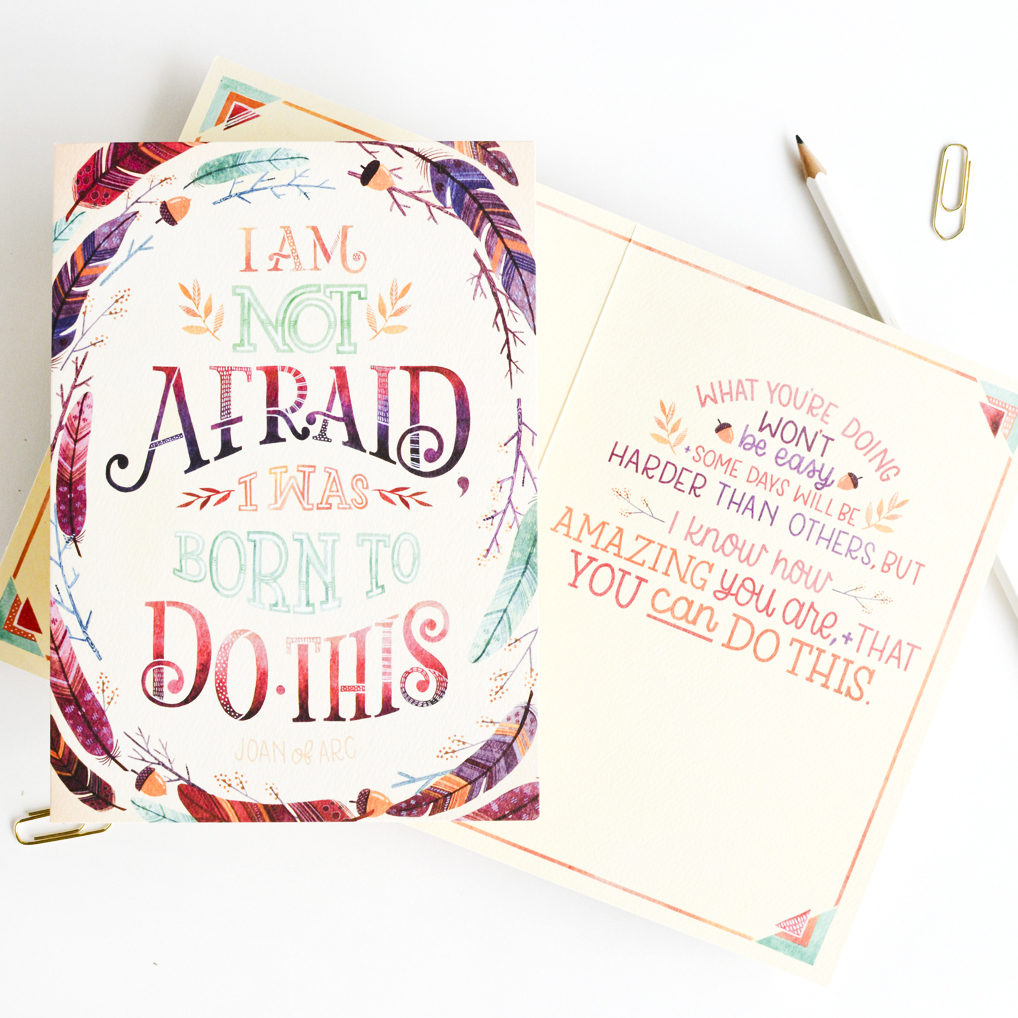 I AM
NOT
AFRAID,
I WAS
BORN TO
DO·THIS
JOAN of ARC
WHAT YOU'RE DOING
WON'T
be easy
+ SOME DAYS WILL BE
HARDER THAN OTHERS, BUT
I know how
AMAZING you are, + THAT
YOU can DO THIS.